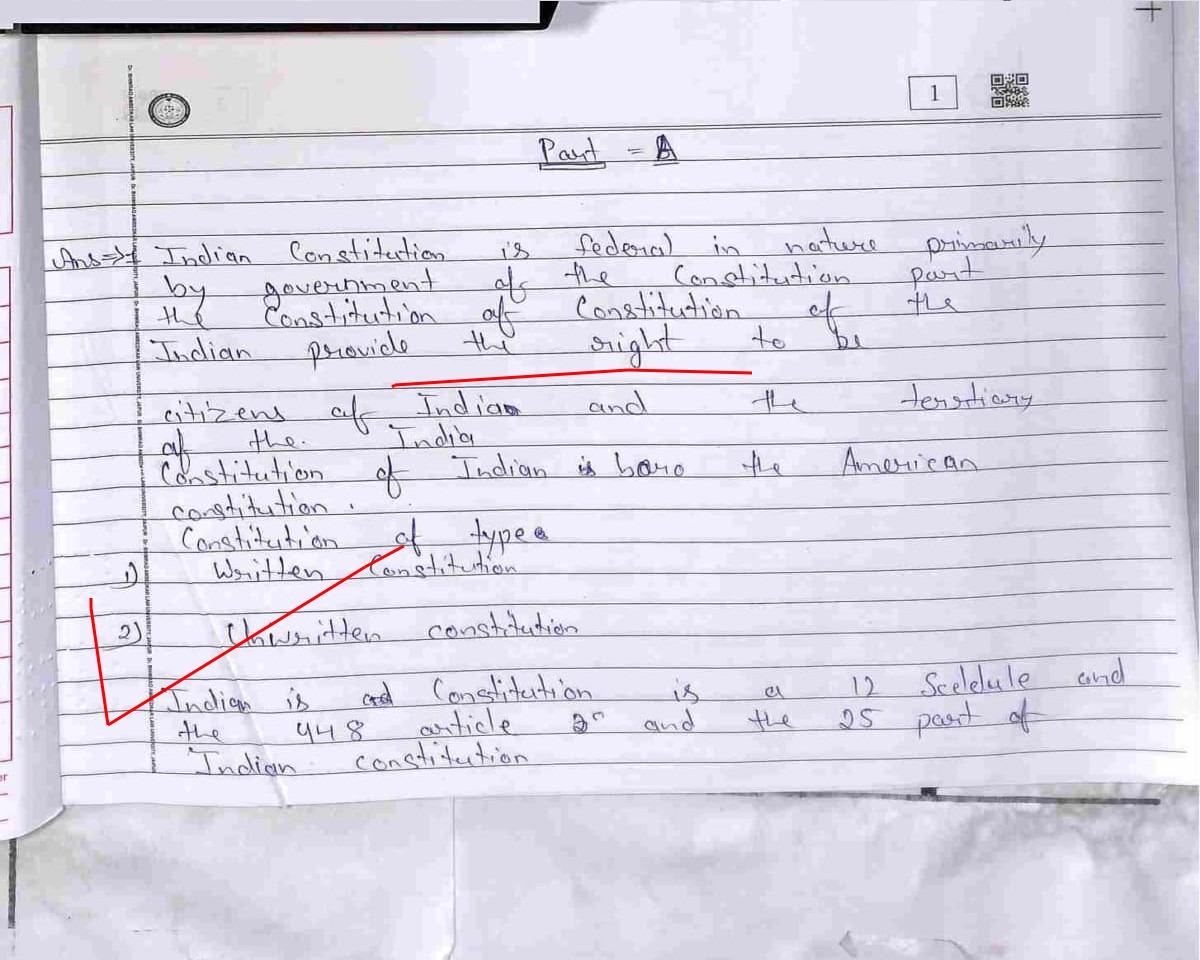 1
Part = A
Ans⇒1 Indian Constitution is federal in nature primarily
by government of the Constitution part
the Constitution of Constitution of the
Indian provide the right to be
citizens of India and the terstiary
of the. India
Constitution of Indian is boro the American
constitution.
Constitution of type
1) Written Constitution
2) Unwritten constitution
Indian is Constitution is a 12 Sceldule and
the 448 article and the 25 part of
Indian constitution